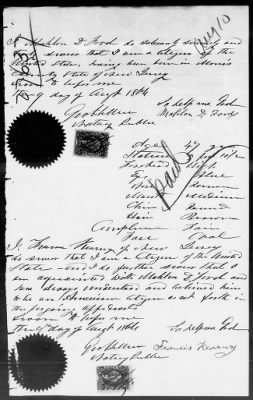 I Mahlon D. Ford do solemnly sincerely and
swear that I am a citizen of the
United States, having been born in Morris
County State of New Jersey
Sworn to before me
9 day of Augt 1864
So help me God
Mahlon D. Ford
Notary Public
Age 47
Stature 5 feet 10 1/2
Forehead High
Eyes Blue
Nose Roman
Mouth Medium
Chin Round
Hair Brown
Complexion Fair
Face Oval
Paid
I, Francis Kearney of New Jersey
do swear that I am a Citizen of the United
States and I do further swear that I
am acquainted with Mahlon D. Ford and
have always understood and believed him
to be an American Citizen as set forth in
the foregoing affidavit
Sworn to before me
the 9 day of Augt 1864
So help me God
Notary Public
Francis Kearney